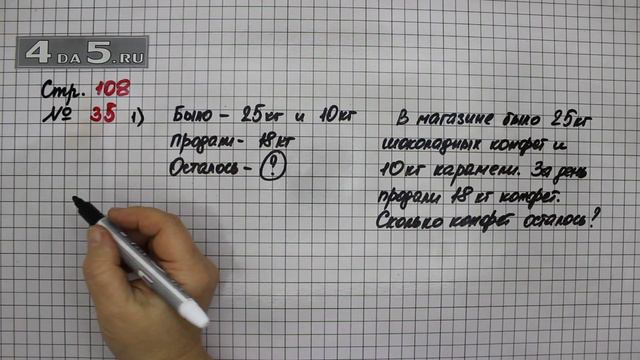 4 ДА 5.RU
Стр. 108
№ 35 1)
Было - 25кг и 10кг
Продали - 18кг
Осталось - ?
В магазине было 25кг
шоколадных конфет и
10кг карамели. За день
продали 18 кг конфет.
Сколько конфет осталось?